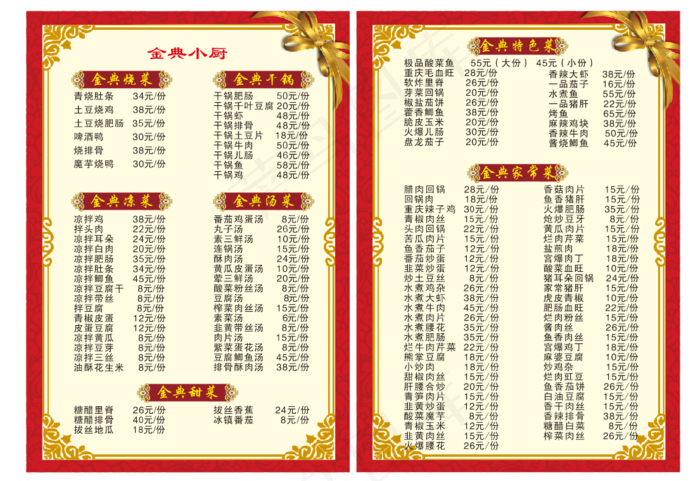 金典小厨
金典烧菜
青烧肚条 34元/份
土豆烧鸡 38元/份
土豆烧肥肠 35元/份
啤酒鸭 30元/份
烧排骨 38元/份
魔芋烧鸭 30元/份
金典干锅
干锅肥肠 50元/份
干锅千叶豆腐 20元/份
干锅虾 48元/份
干锅排骨 48元/份
干锅土豆片 18元/份
干锅牛肉 50元/份
干锅儿肠 46元/份
干锅鱼 58元/份
干锅鸡 48元/份
金典凉菜
凉拌鸡 38元/份
拌头肉 22元/份
凉拌耳朵 24元/份
凉拌白肉 20元/份
凉拌肥肠 35元/份
凉拌肚条 34元/份
凉拌鲫鱼 45元/份
凉拌豆腐干 8元/份
凉拌带丝 8元/份
拌豆腐 8元/份
青椒皮蛋 12元/份
皮蛋豆腐 12元/份
凉拌黄瓜 8元/份
凉拌豆芽 8元/份
凉拌三丝 8元/份
油酥花生米 8元/份
金典汤菜
番茄鸡蛋汤 8元/份
丸子汤 26元/份
素三鲜汤 10元/份
连锅汤 15元/份
酥肉汤 24元/份
黄瓜皮蛋汤 10元/份
荤三鲜汤 20元/份
酸菜粉丝汤 8元/份
豆腐汤 8元/份
榨菜肉丝汤 15元/份
素菜汤 6元/份
韭黄带丝汤 8元/份
肉片汤 15元/份
紫菜蛋花汤 8元/份
豆腐鲫鱼汤 45元/份
排骨酥肉汤 38元/份
金典甜菜
糖醋里脊 26元/份
糖醋排骨 40元/份
拔丝地瓜 18元/份
拔丝香蕉 24元/份
冰镇番茄 8元/份
金典特色菜
极品酸菜鱼 55元(大份) 45元(小份)
重庆毛血旺 28元/份
软炸里脊 26元/份
芽菜回锅 20元/份
椒盐茄饼 26元/份
藿香鲫鱼 38元/份
脆皮玉米 20元/份
火爆儿肠 30元/份
盘龙茄子 20元/份
香辣大虾 38元/份
一品茄子 16元/份
水煮鱼 55元/份
一品猪肝 22元/份
烤鱼 65元/份
麻辣鸡块 38元/份
香辣牛肉 50元/份
酱烧鲫鱼 45元/份
金典家常菜
腊肉回锅 28元/份
回锅肉 18元/份
重庆辣子鸡 30元/份
青椒肉丝 15元/份
头肉回锅 22元/份
苦瓜肉片 15元/份
苦香茄子 12元/份
番茄炒蛋 12元/份
韭菜炒蛋 12元/份
炒土豆丝 8元/份
水煮鸡杂 26元/份
水煮大虾 38元/份
水煮牛肉 45元/份
水煮肉片 26元/份
水煮腰花 35元/份
水煮肥肠 35元/份
烂牛肉芹菜 22元/份
熊掌豆腐 18元/份
小炒肉 18元/份
甜椒肉丝 15元/份
肝腰合炒 20元/份
青笋肉片 15元/份
韭黄炒蛋 12元/份
酸菜魔芋 8元/份
青椒玉米 12元/份
韭黄肉丝 15元/份
火爆腰花 26元/份
香菇肉片 15元/份
鱼香猪肝 15元/份
火爆肥肠 35元/份
炝炒豆牙 8元/份
黄瓜肉片 15元/份
烂肉芹菜 15元/份
盐煎肉 18元/份
宫爆肉丁 18元/份
酸菜血旺 10元/份
猪耳朵回锅 24元/份
家常猪肝 15元/份
虎皮青椒 10元/份
肥肠血旺 22元/份
烂肉粉丝 15元/份
酱肉丝 26元/份
鱼香肉丝 15元/份
宫爆鸡丁 18元/份
麻婆豆腐 10元/份
炒鸡杂 15元/份
烂肉豇豆 15元/份
鱼香茄饼 26元/份
白油豆腐 15元/份
香干肉丝 15元/份
香辣排骨 38元/份
糖醋白菜 8元/份
榨菜肉丝 26元/份